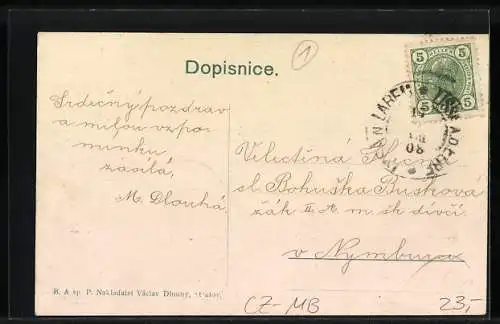 1
Dopisnice.
Srdečný pozdrav
a milou vzpo-
mínku
zasílá,
M. Dlouhá.
5 5
5 5
LABEM
08
Velectěná Slečna
sl. Bohuška Busková
žák II. A. m. šk dívčí
v Nymburce
B. & sp. P. Nakladatel Václav Dlouhý,
CZ-MB
23,-